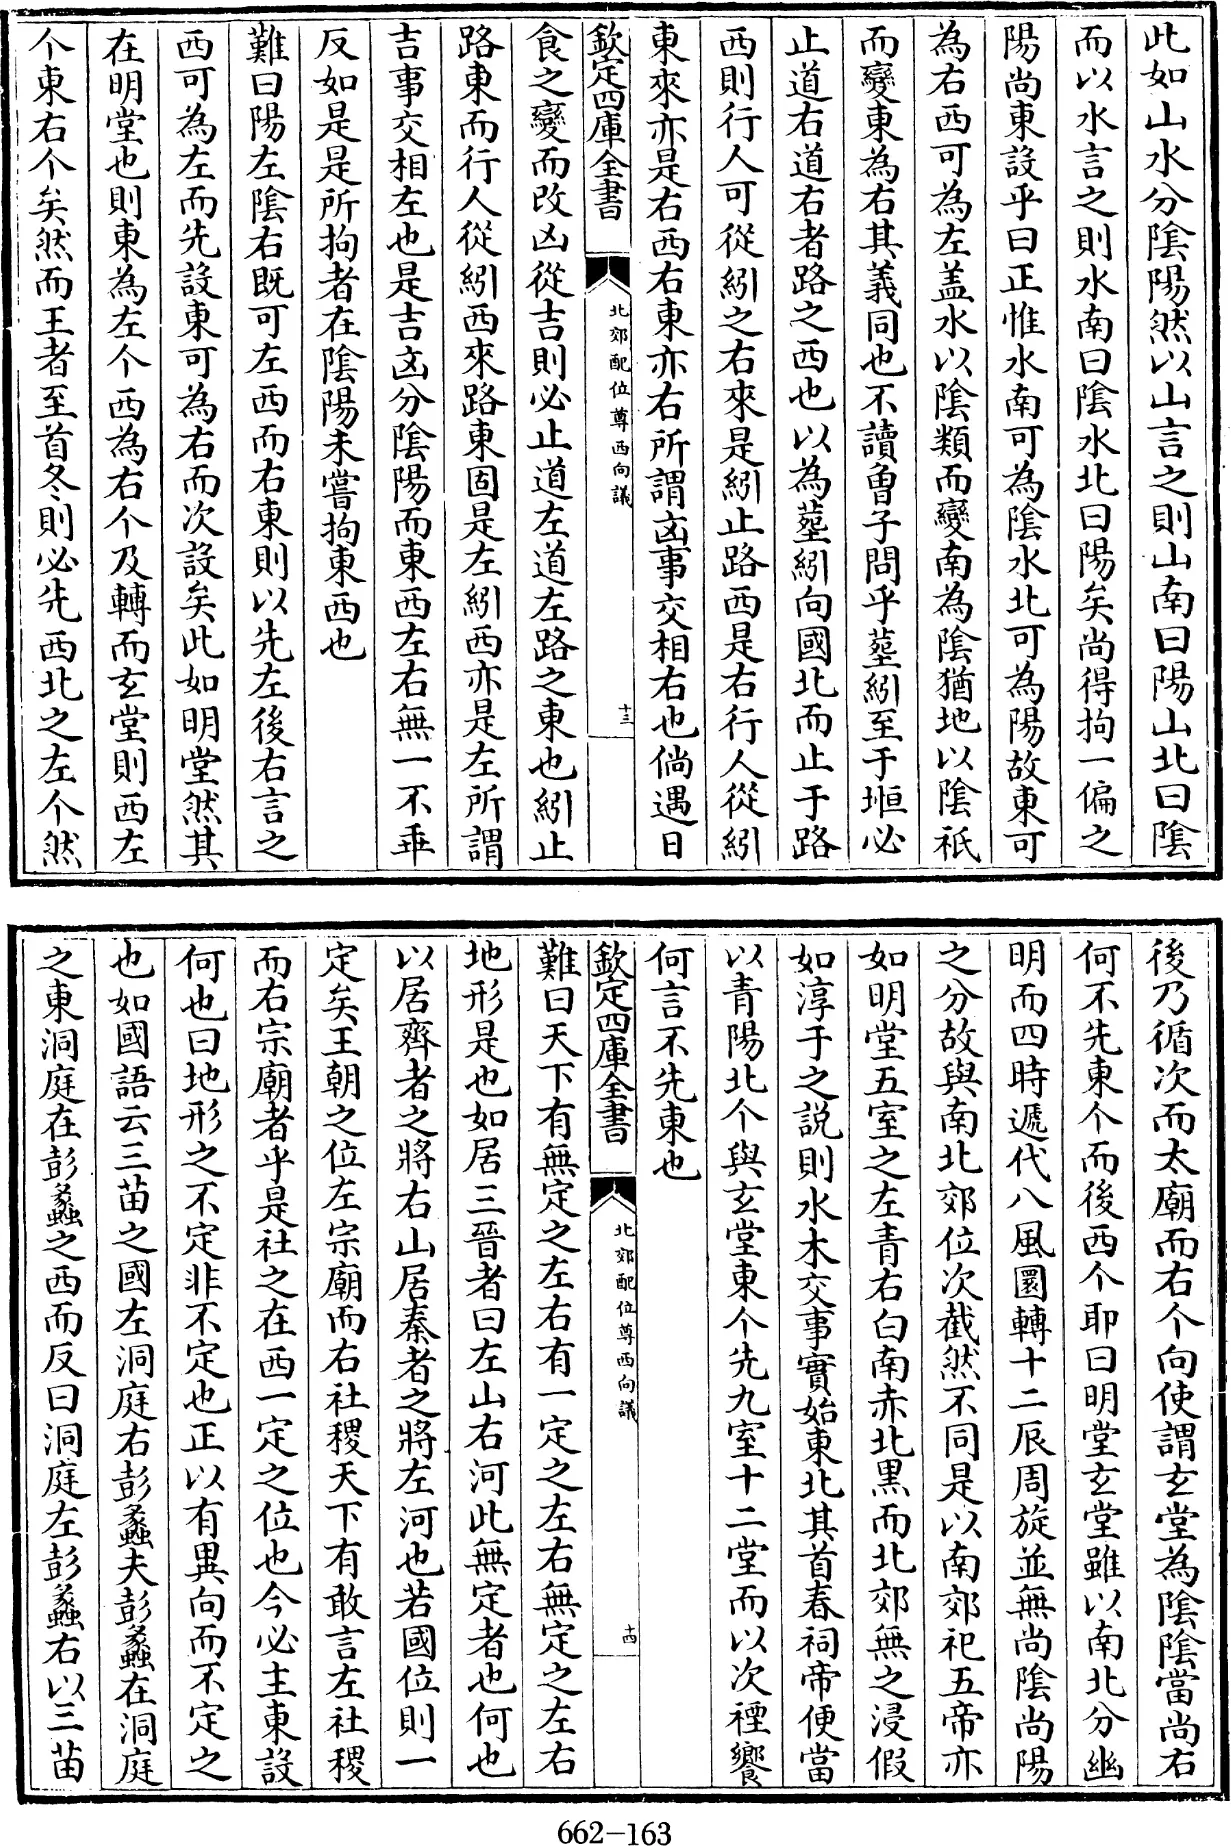 此如山水分陰陽然以山言之則山南曰陽山北曰陰
而以水言之則水南曰陰水北曰陽矣尚得拘一偏之
陽尚東設乎曰正惟水南可為陰水北可為陽故東可
為右西可為左盖水以陰類而變南為陰猶地以陰祇
而變東為右其義同也不讀曾子問乎塟紖至于堩必
止道右道右者路之西也以為塟紖向國北而止于路
西則行人可從紖之右來是紖止路西是右行人從紖
東來亦是右西右東亦右所謂凶事交相右也倘遇日
欽定四庫全書
北郊配位尊西向議
十三
食之變而改凶從吉則必止道左道左路之東也紖止
路東而行人從紖西來路東固是左紖西亦是左所謂
吉事交相左也是吉凶分陰陽而東西左右無一不乖
反如是是所拘者在陰陽未嘗拘東西也
難曰陽左陰右既可左西而右東則以先左後右言之
西可為左而先設東可為右而次設矣此如明堂然其
在明堂也則東為左个西為右个及轉而玄堂則西左
个東右个矣然而王者至首冬則必先西北之左个然
後乃循次而太廟而右个向使謂玄堂為陰陰當尚右
何不先東个而後西个耶曰明堂玄堂雖以南北分幽
明而四時遞代八風圜轉十二辰周旋並無尚陰尚陽
之分故與南北郊位次截然不同是以南郊祀五帝亦
如明堂五室之左青右白南赤北黑而北郊無之浸假
如淳于之說則水木交事實始東北其首春祠帝便當
以青陽北个與玄堂東个先九室十二堂而以次禋饗
何言不先東也
欽定四庫全書
北郊配位尊西向議
十四
難曰天下有無定之左右有一定之左右無定之左右
地形是也如居三晉者曰左山右河此無定者也何也
以居齊者之將右山居秦者之將左河也若國位則一
定矣王朝之位左宗廟而右社稷天下有敢言左社稷
而右宗廟者乎是社之在西一定之位也今必主東設
何也曰地形之不定非不定也正以有異向而不定之
也如國語云三苗之國左洞庭右彭蠡夫彭蠡在洞庭
之東洞庭在彭蠡之西而反曰洞庭左彭蠡右以三苗
662-163